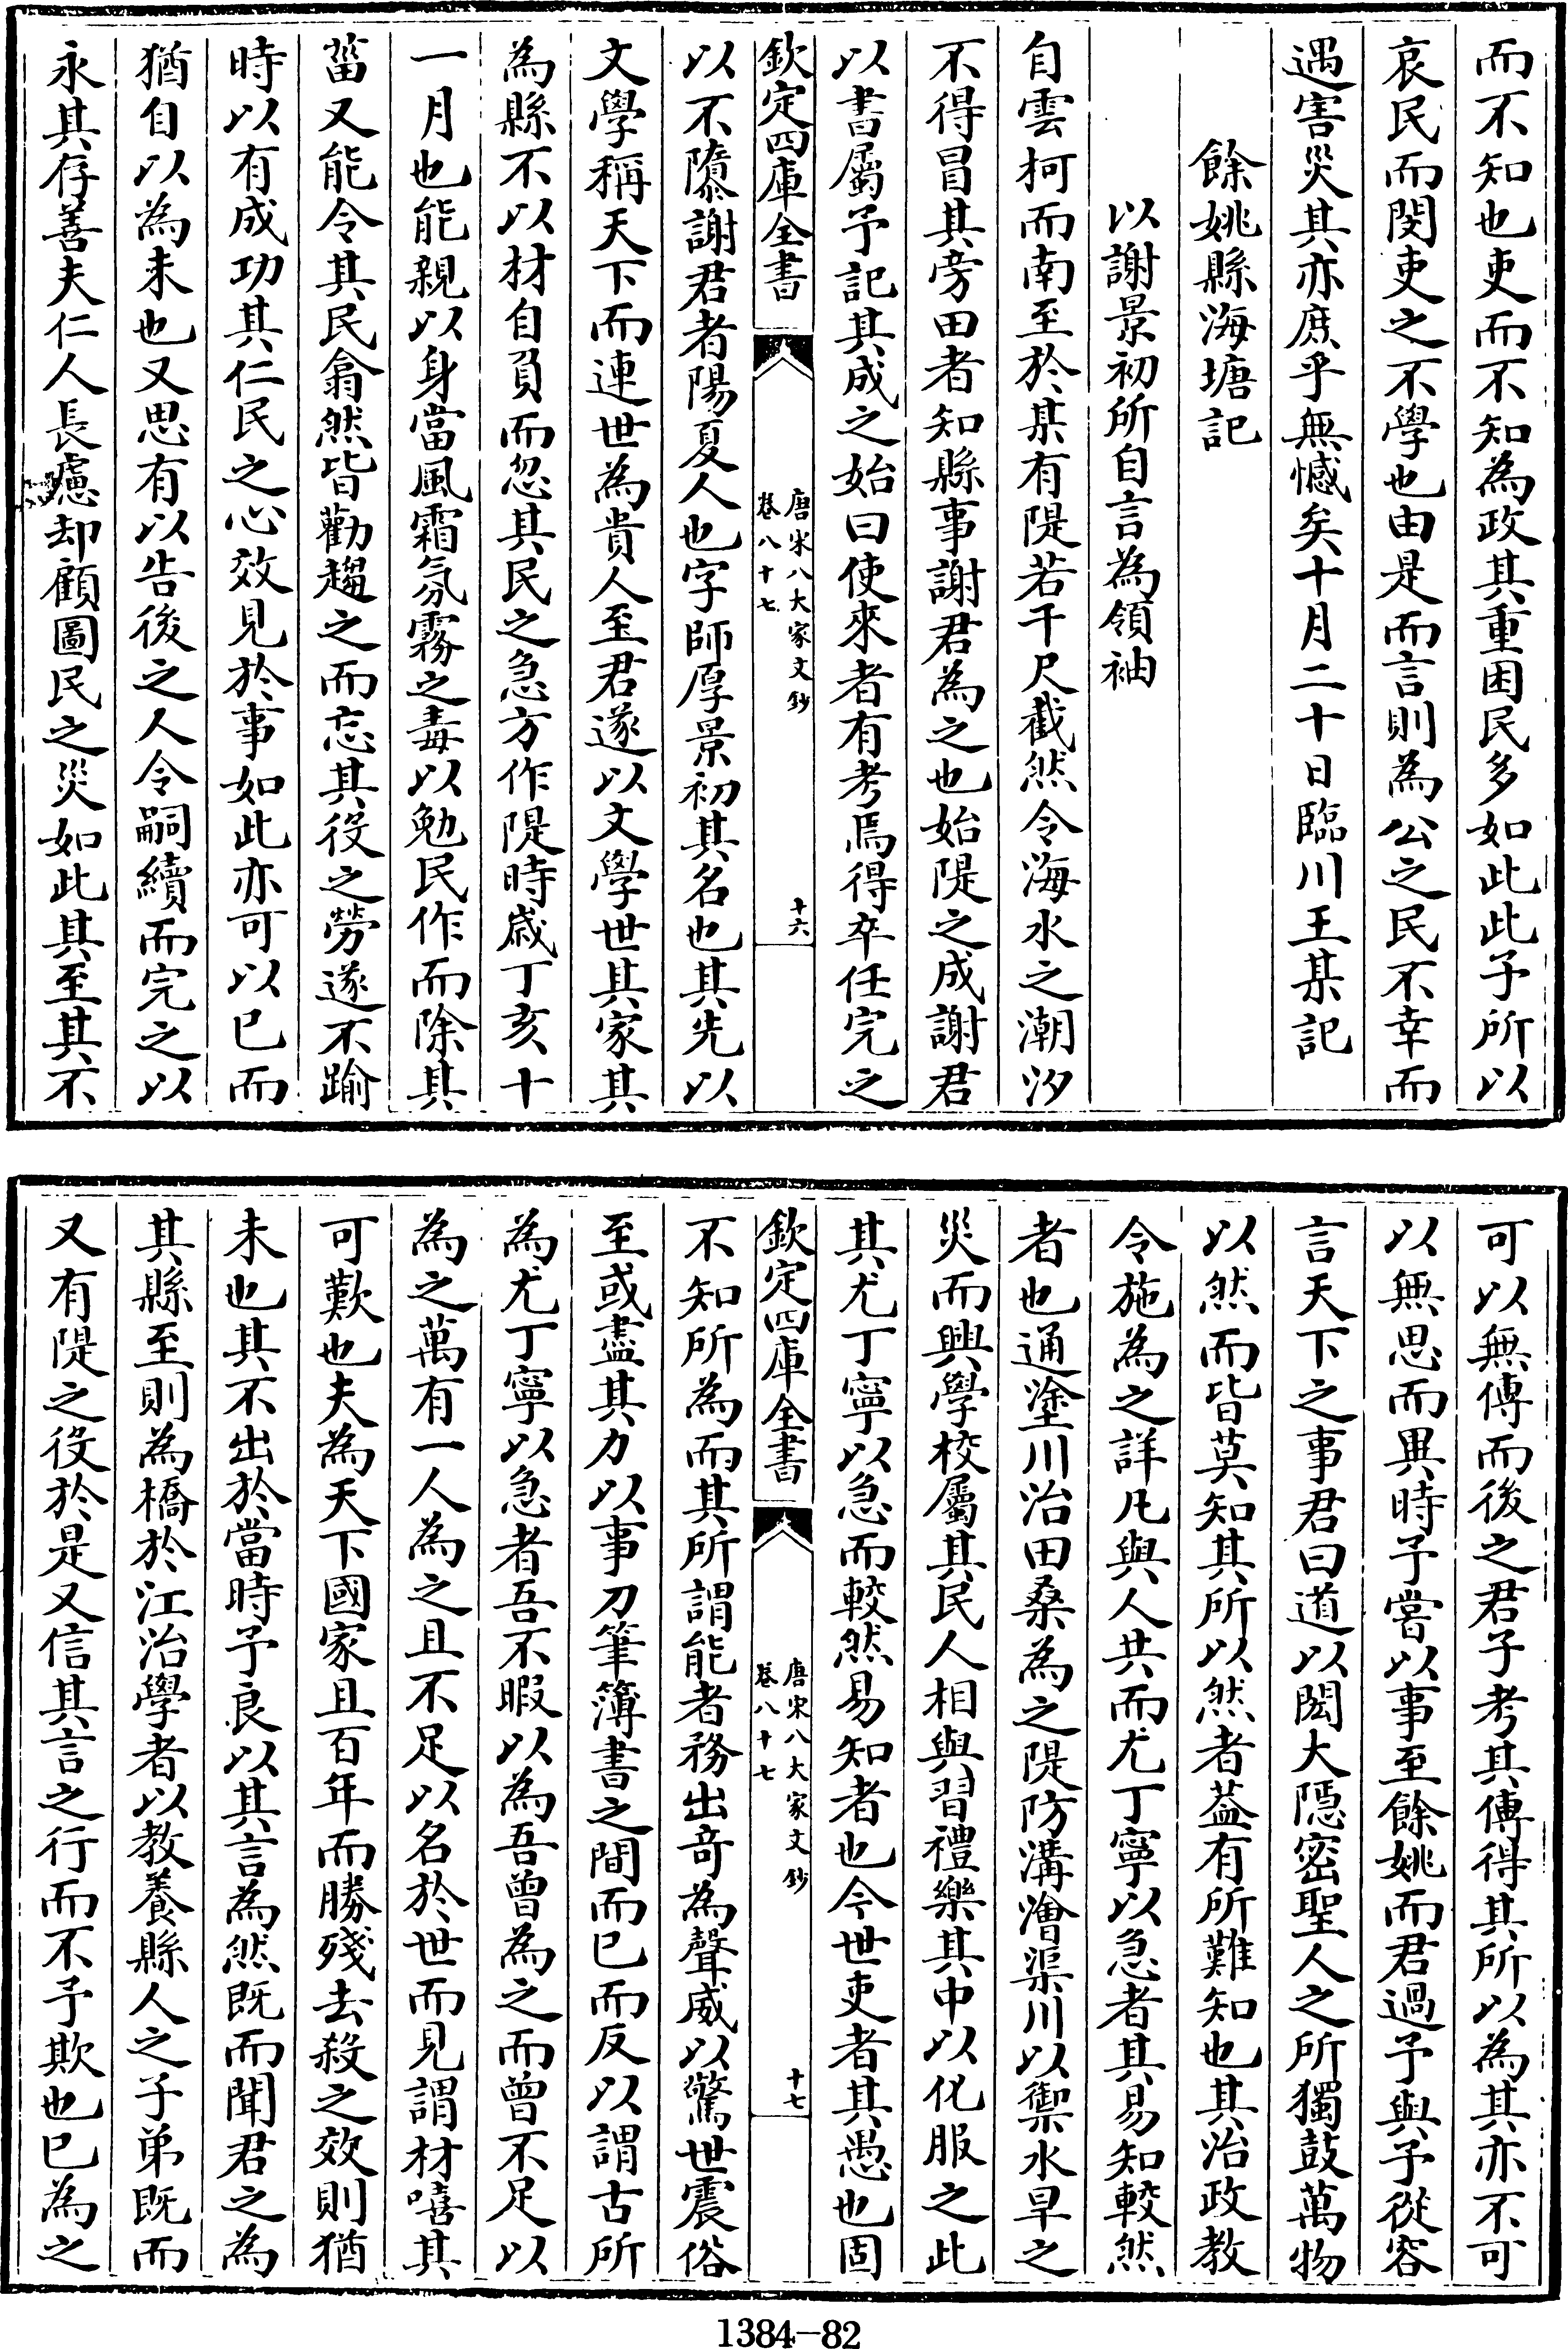 而不知也吏而不知為政其重困民多如此此予所以
哀民而閔吏之不學也由是而言則為公之民不幸而
遇害災其亦庶乎無憾矣十月二十日臨川王某記
餘姚縣海塘記
以謝景初所自言為領袖
自雲柯而南至於某有隄若干尺截然令海水之潮汐
不得冒其旁田者知縣事謝君為之也始隄之成謝君
以書屬予記其成之始曰使來者有考焉得卒任完之
欽定四庫全書
唐宋八大家文鈔
卷八十七
十六
以不隳謝君者陽夏人也字師厚景初其名也其先以
文學稱天下而連世為貴人至君遂以文學世其家其
為縣不以材自負而忽其民之急方作隄時歳丁亥十
一月也能親以身當風霜氛霧之毒以勉民作而除其
菑又能令其民翕然皆勸趨之而忘其役之勞遂不踰
時以有成功其仁民之心效見於事如此亦可以已而
猶自以為未也又思有以告後之人令嗣續而完之以
永其存善夫仁人長慮却顧圖民之災如此其至其不
可以無傳而後之君子考其傳得其所以為其亦不可
以無思而異時予嘗以事至餘姚而君過予與予從容
言天下之事君曰道以閎大隱密聖人之所獨鼓萬物
以然而皆莫知其所以然者葢有所難知也其治政教
令施為之詳凡與人共而尤丁寧以急者其易知較然
者也通塗川治田桑為之隄防溝澮渠川以禦水旱之
災而興學校屬其民人相與習禮樂其中以化服之此
其尤丁寧以急而較然易知者也今世吏者其愚也固
欽定四庫全書
唐宋八大家文鈔
卷八十七
十七
不知所為而其所謂能者務出奇為聲威以驚世震俗
至或盡其力以事刀筆簿書之間而已而反以謂古所
為尤丁寧以急者吾不暇以為吾曾為之而曾不足以
為之萬有一人為之且不足以名於世而見謂材嘻其
可歎也夫為天下國家且百年而勝殘去殺之效則猶
未也其不出於當時予良以其言為然既而聞君之為
其縣至則為橋於江治學者以教養縣人之子弟既而
又有隄之役於是又信其言之行而不予欺也已為之
1384-82